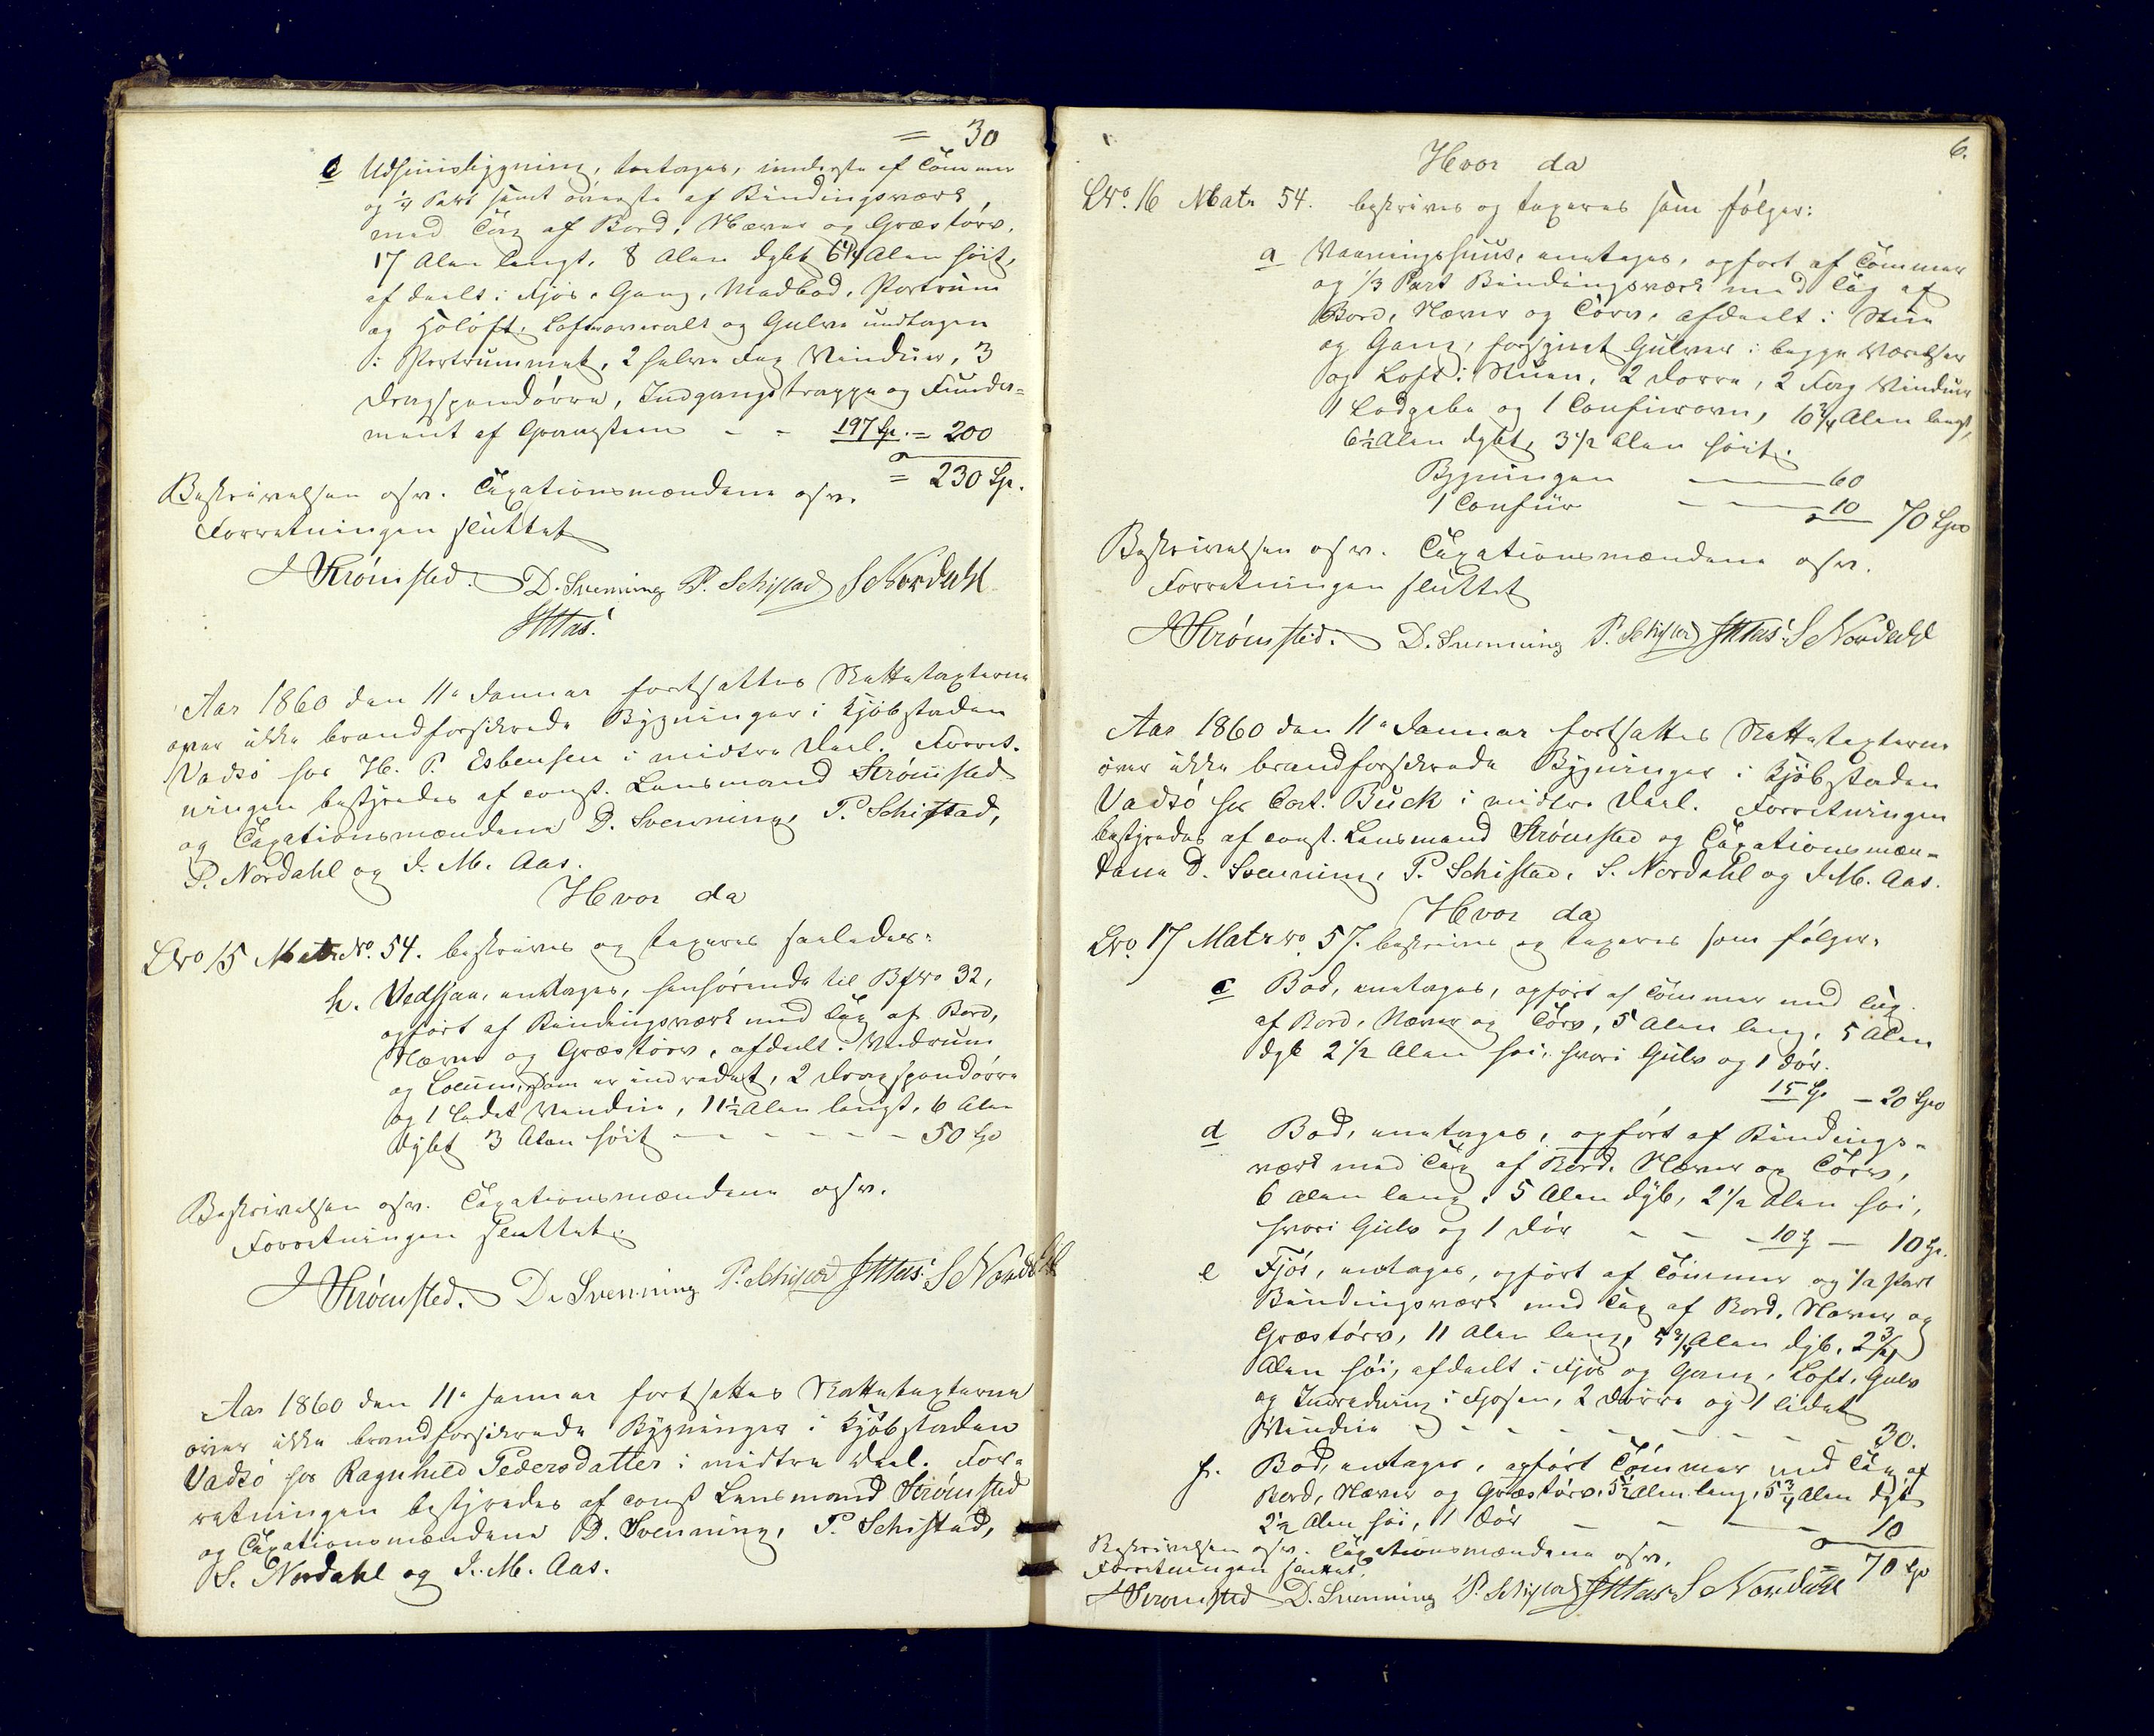 = 30
c Udhuusbygning, toetages, underste af Tömmer
og 1/4 Part samt överste af Bindingsværk
med Tag af Bord, Næver og Græstörv,
17 Alen langt, 8 Alen dybt 6 1/4 Alen höit,
afdeelt i Fjös, Gang, Madbod, Portrum
og Höloft, Loft overalt og Gulve undtagen
i Portrummet, 2 halve Fag Vinduer, 3
Dragspendörre, Indgangstrappe og Funda-
ment af Graasteen - - 197 Sp. = 200
= 230 Sp.
Beskrivelsen osv. Taxationsmændene osv.
Forretningen sluttet
Strömsted. D. Svenning P. Schistad S Nordahl
JMAas.
Aar 1860 den 11e Januar fortsattes Skattetaxterne
over ikke brandforsikrede Bygninger i Kjöbstaden
Vadsö hos H. P. Esbensen i midtre Deel. Forret-
ningen bestyredes af const. Lensmand Strömsted
og Taxationsmændene D. Svenning, P. Schistad,
S. Nordahl og J. M. Aas.
Hvor da
Lno 15 Matr No. 54. beskrives og taxeres saaledes:
h. Vedsjaa, enetages, henhörende til Bfno 32,
opfört af Bindingsværk med Tag af Bord,
Næver og Græstörv, afdeelt i Vedrum
og Locum, som er indredet, 2 Dragspendörre
og 1 lidet Vindue, 11 1/2 Alen langt, 6 Alen
dybt 3 Alen höit - - - - - 50 Sp
Beskrivelsen osv. Taxationsmændene osv.
Forretningen sluttet.
Strömsted. D. Svenning P. Schistad JMAas. S Nordahl
Aar 1860 den 11e Januar fortsattes Skattetaxterne
över ikke brandforsikrede Bygninger i Kjöbstaden
Vadsö hos Ragnhild Pedersdatter i midtre Deel. For-
retningen bestyredes af const Lensmand Strömsted
og Taxationsmændene D. Svenning, P. Schistad,
S. Nordahl og J. M. Aas.
6.
Hvor da
Lno. 16 Matr 54. beskrives og taxeres som fölger:
a Vaaningshuus, enetages, opfört af Tömmer
og 1/3 Part Bindingsværk med Tag af
Bord, Næver og Törv, afdeelt i Stue
og Gang, forsynet Gulver i begge Værelser
og Loft i Stuen, 2 Dörre, 2 Fag Vinduer
1 Ladgabe og 1 Confurovn, 10 3/4 Alen langt,
6 1/2 Alen dybt, 3 1/2 Alen höit.
Bygningen - - 60
1 Confur - - 10 70 Spd
Beskrivelsen osv. Taxationsmændene osv.
Forretningen sluttet
Strömsted. D. Svenning P. Schistad JMAas. S Nordahl
Aar 1860 den 11e Januar fortsattes Skattetaxterne
över ikke brandforsikrede Bygninger i Kjöbstaden
Vadsö hos Cart. Buck i midtre Deel. Forretningen
bestyredes af const. Lensmand Strömsted og Taxationsmæn-
dene D. Svenning, P. Schistad, S. Nordahl og J. M. Aas.
Hvor da
Lno. 17 Matr no 57. beskrives og taxeres som fölger.
c Bod, enetages, opfört af Tömmer med Tag
af Bord, Næver og Törv, 5 Alen lang, 5 Alen
dyb 2 1/2 Alen höi, hvori Gulv og 1 Dör.
15 Sp - 20 Spd
d Bod, enetages, opfört af Bindings-
værk med Tag af Bord, Næver og Törv,
6 Alen lang, 5 Alen dyb, 2 1/2 Alen höi,
hvori Gulv og 1 Dör - - - 10 Sp - 10 Sp.
e Fjös, enetages, opfört af Tömmer og 1/2 Part
Bindingsværk med Tag af Bord, Næver og
Græstörv, 11 Alen lang, 5 3/4 Alen dyb, 2 3/4
Alen höi, afdeelt i Fjös og Gang, Loft, Gulv
og Indredning i Fjösen, 2 Dörre og 1 lidet
Vindue - - - - - - - 30.
f. Bod, enetages, opfört Tömmer med Tag af
Bord, Næver og Græstörv, 5 1/2 Alen lang, 5 3/4 Alen dyb
2 1/2 Alen höi, 1 Dör - - - - 10
Beskrivelsen osv. Taxationsmændene osv. = 70 Sp
Forretningen sluttet.
Strömsted D. Svenning P. Schistad JMAas S Nordahl